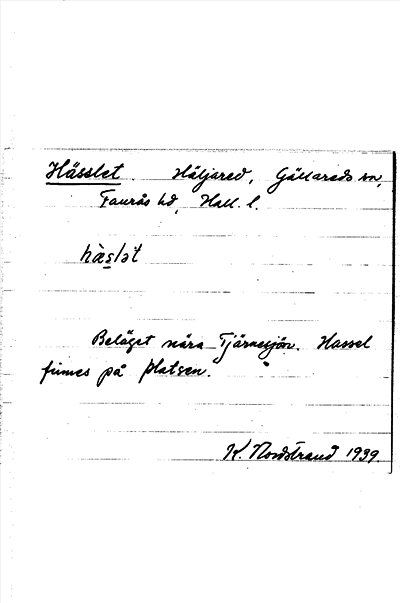 Hässlet. Häljared, Gällareds sn,
Faurås hd, Hall. l.
hàs̲lət
Beläget nära Tjärnesjön. Hassel
finnes på platsen.
K. Nordstrand 1939.